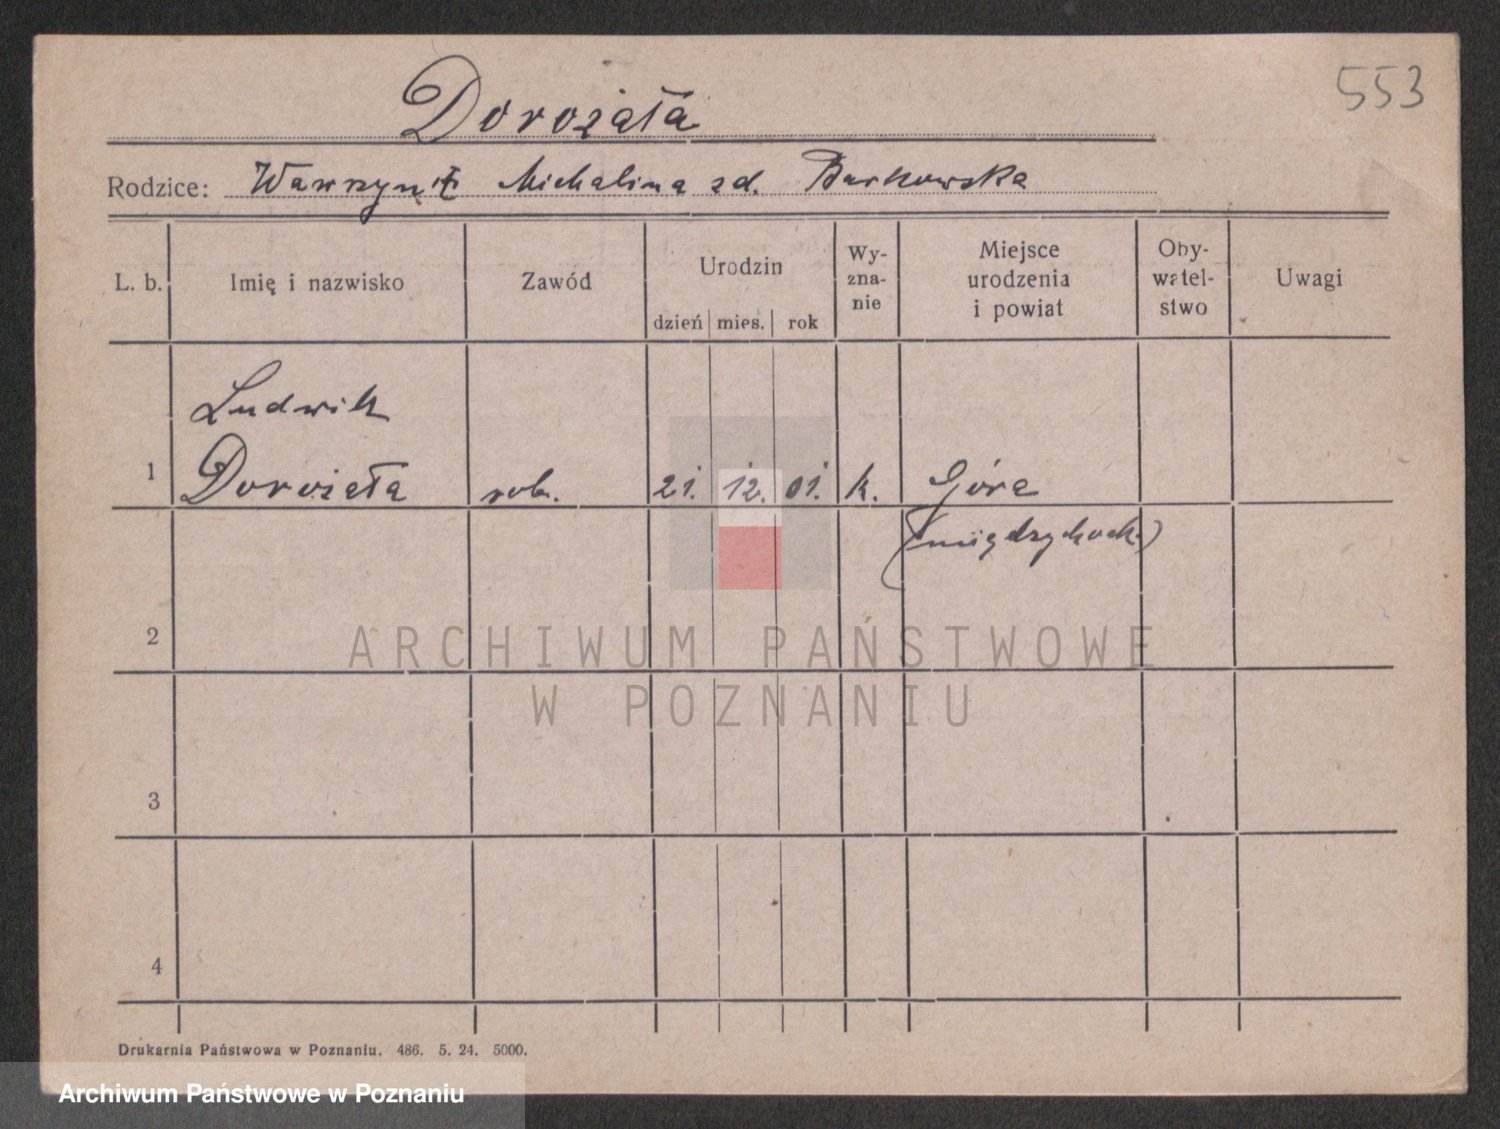 553
Dorożała
Rodzice: Wawrzyn i Michalina zd. Barkowska
L. b. Imię i nazwisko Zawód Urodzin dzień mies. rok Wy-zna-nie Miejsce urodzenia i powiat Oby-watel-stwo Uwagi
Ludwik
1 Dorożała rob. 21. 12. 01. k. Góra
(międzychodz.)
2
3
4
ARCHIWUM PAŃSTWOWE
W POZNANIU
Drukarnia Państwowa w Poznaniu. 486. 5. 24. 5000.
Archiwum Państwowe w Poznaniu